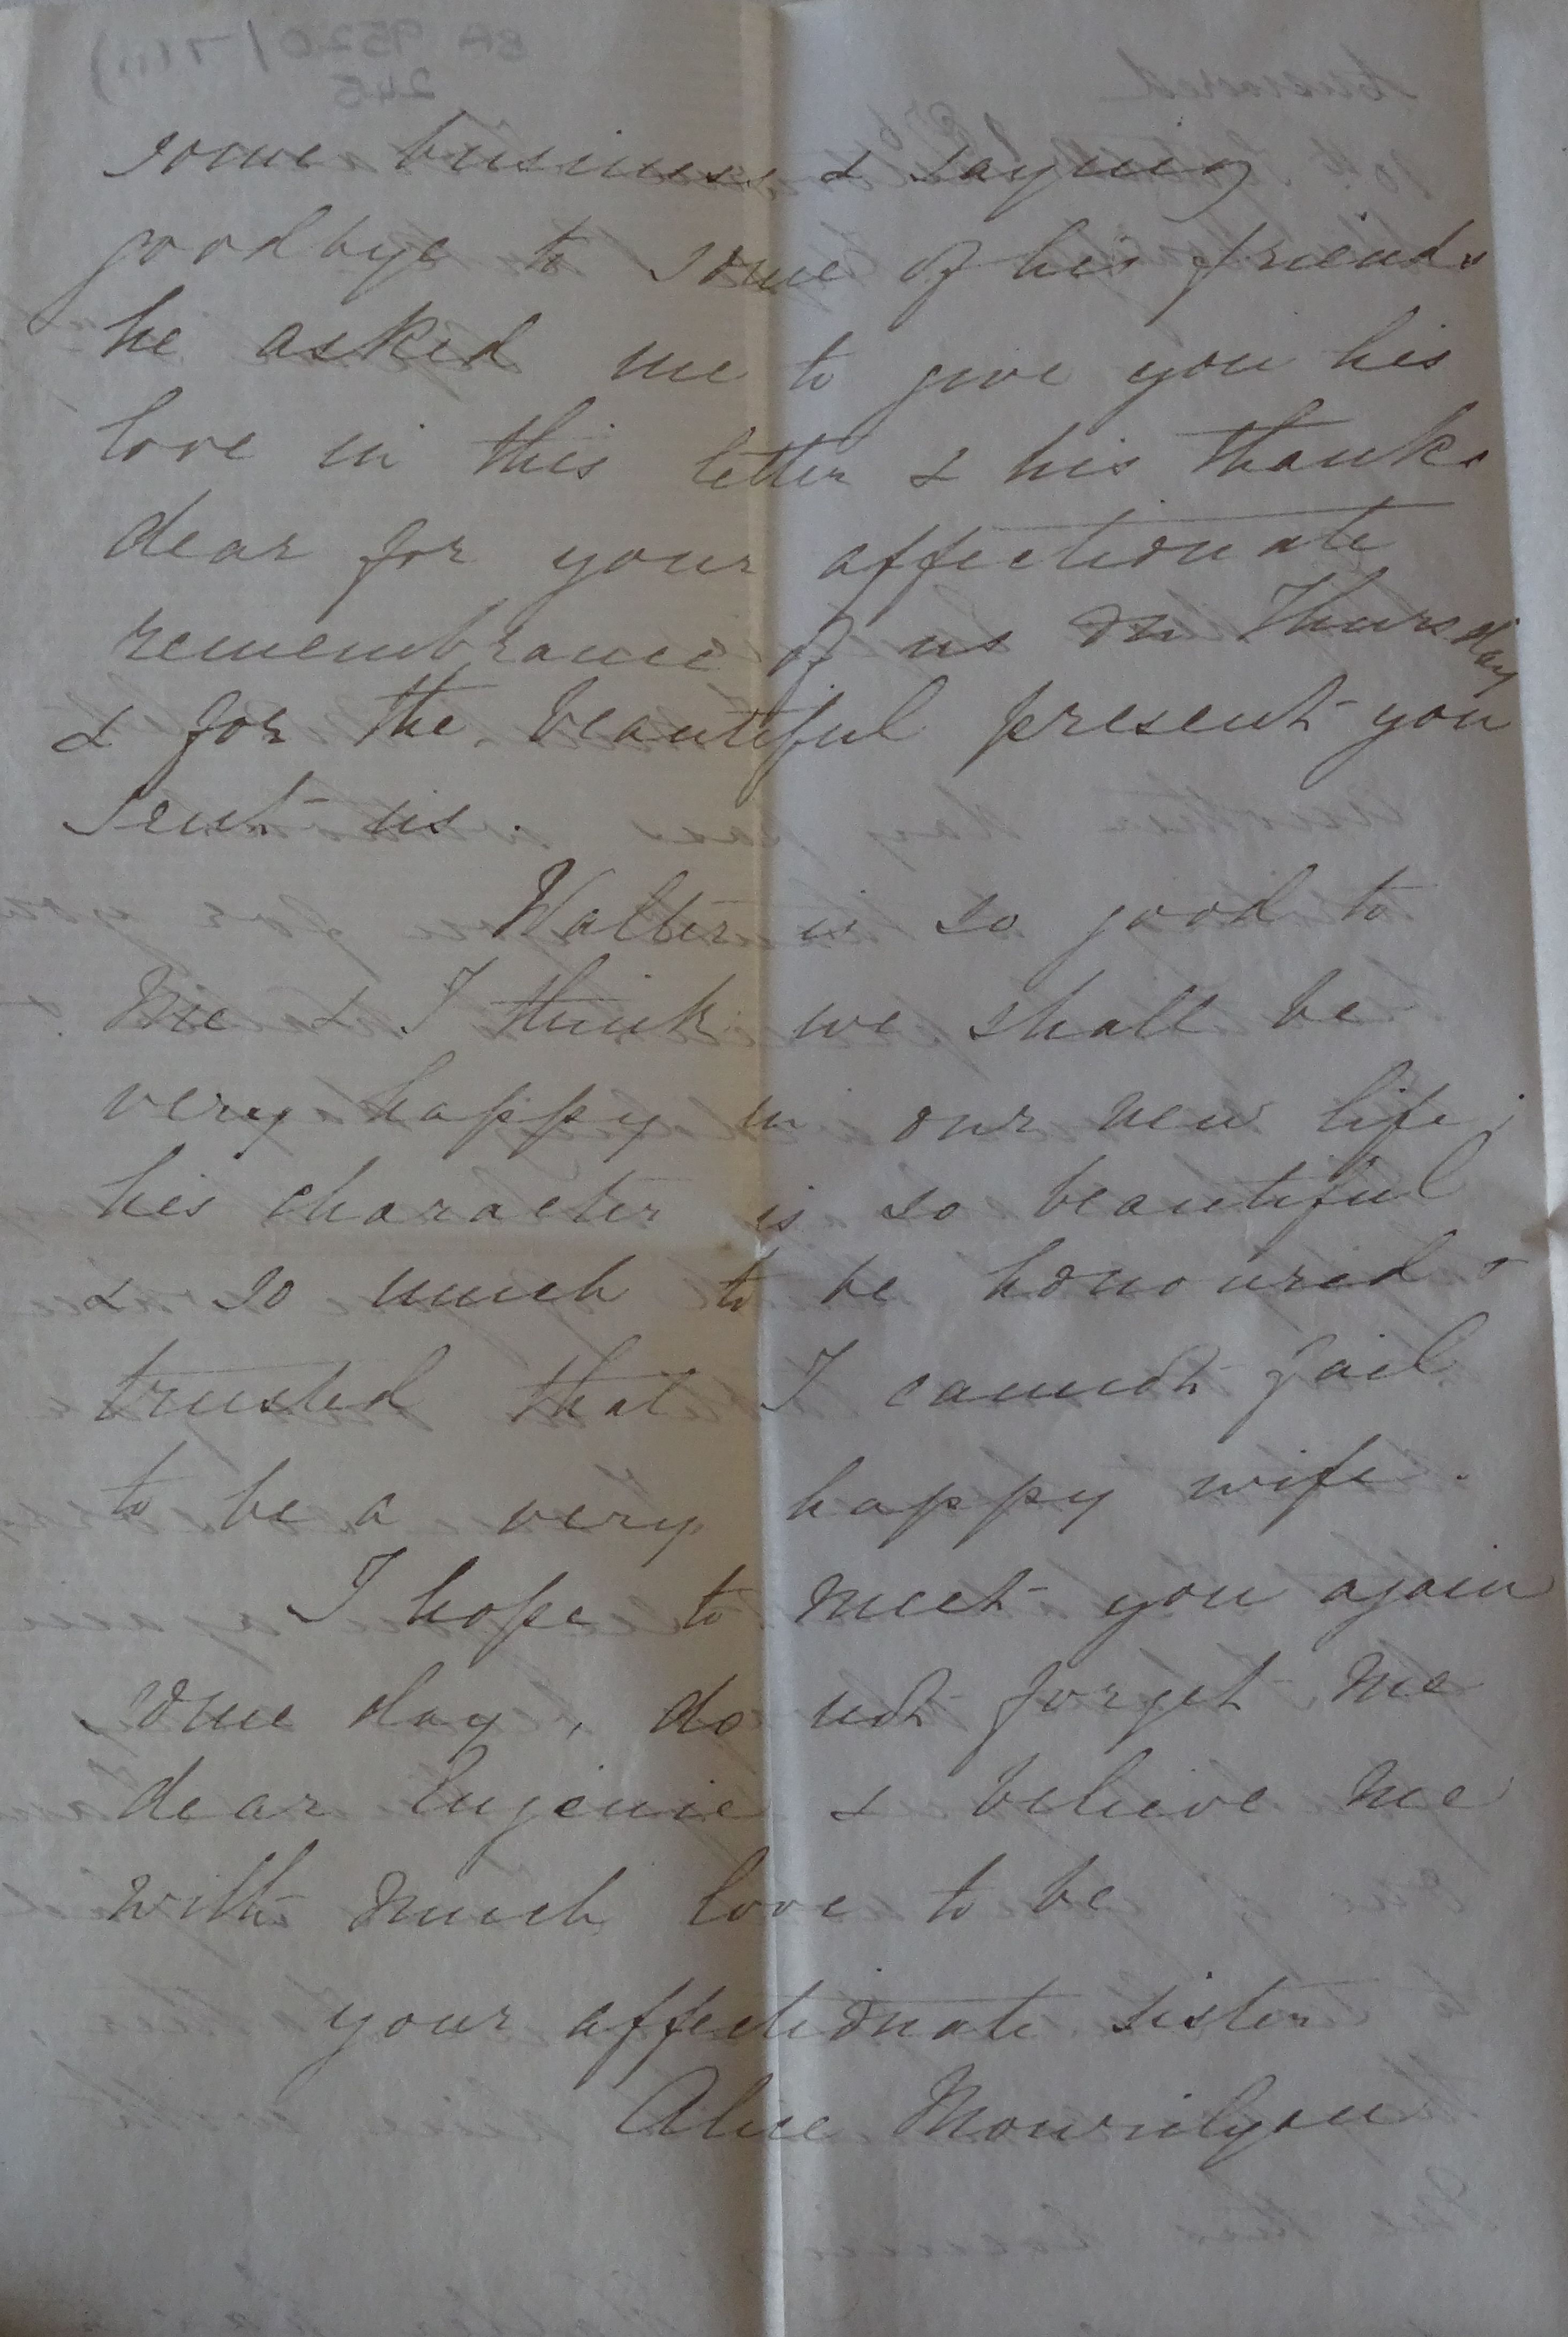 some business & saying
goodbye to some of his friends
he asked me to give you his
love in this letter & his thanks
dear for your affectionate
remembrance of us on Thursday
& for the beautiful present you
sent us.
Walter is so good to
me & I think we shall be
very happy in our new life;
his character is so beautiful
& so much to be honoured &
trusted that I cannot fail
to be a very happy wife.
I hope to meet you again
some day, do not forget me
dear Eugenie & believe me
with much love to be
your affectionate sister
Alice Mourilyan